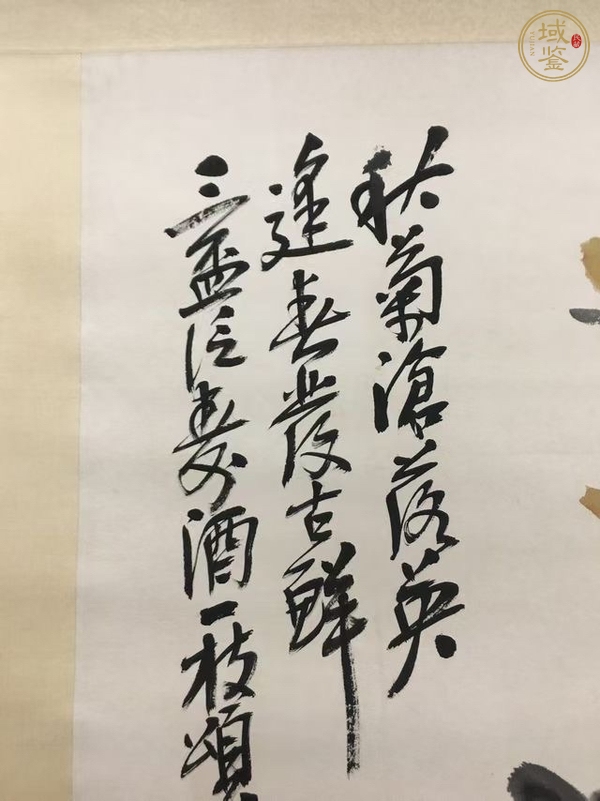 秋菊滄落英
逢春發古鮮
三盃壽酒一枝頌
域鉴
YUJIAN